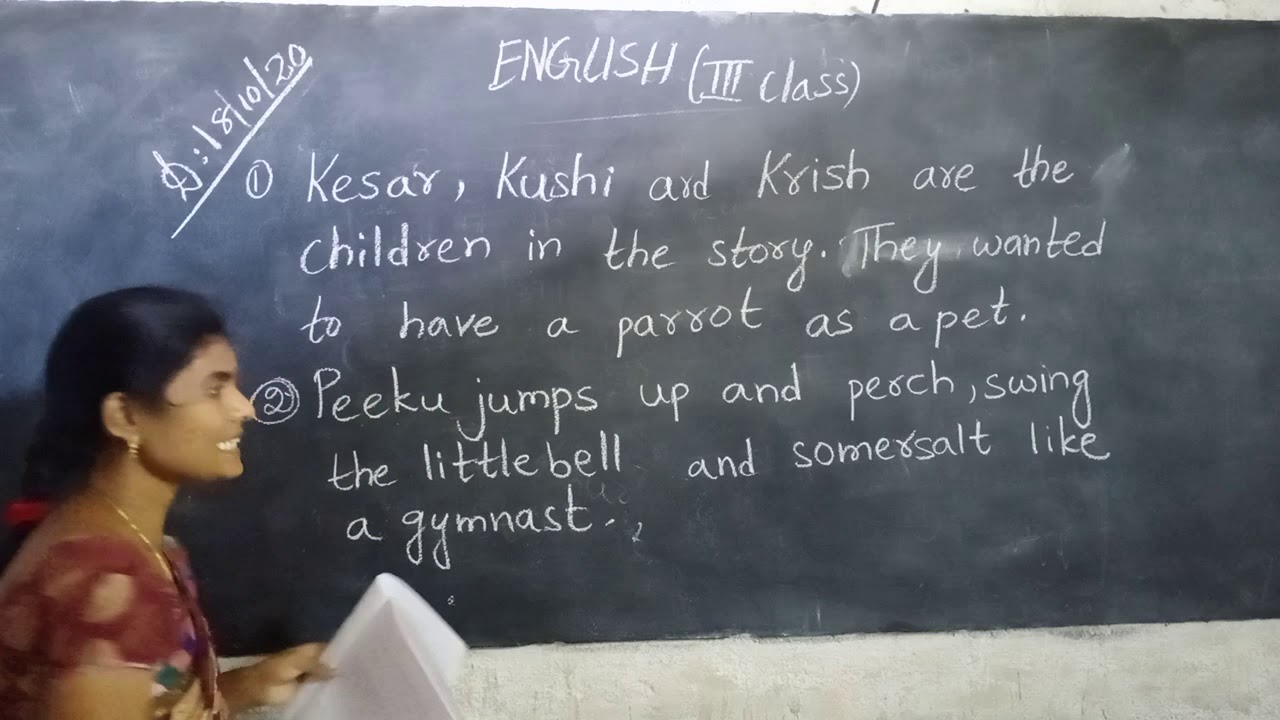 ENGLISH (III class)
D: 18/10/20
① Kesar, Kushi and Krish are the
children in the story. They wanted
to have a parrot as a pet.
② Peeku jumps up and perch, swing
the little bell and somersalt like
a gymnast.